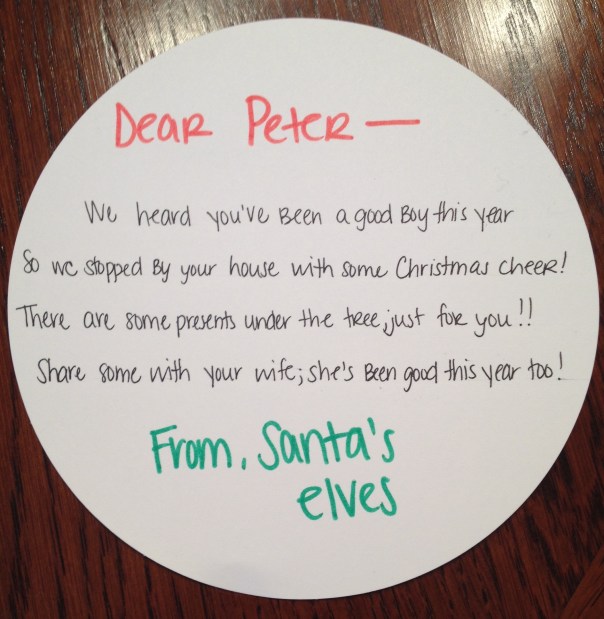 Dear Peter —
We heard you've been a good boy this year
So we stopped by your house with some Christmas cheer!
There are some presents under the tree, just for you!!
Share some with your wife; she's been good this year too!
From, Santa's
elves